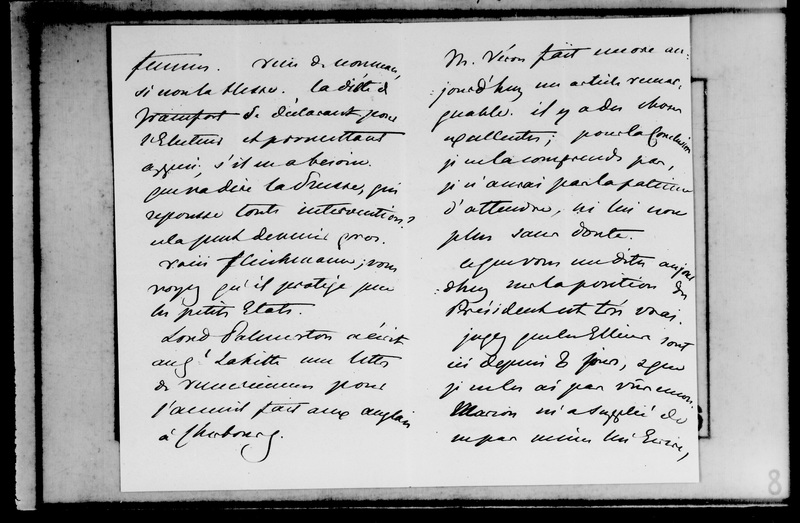 femmes. rien de nouveau,
si non la Hesse. la diète de
francfort se déclarant pour
l'Electeur et promettant
appui, s'il en a besoin.
que va dire la Prusse, qui
repousse toute intervention?
cela peut devenir gros.
voici fleischmann; vous
voyez qu'il protège peu
les petits Etats.
Lord Palmerston a écrit
au gl Lahitte une lettre
de remerciemens pour
l'accueil fait aux anglais
à Cherbourg.
M. Véron fait encore au-
jourd'huy un article remar-
quable. il y a des choses
excellentes; pour la Conclusion
je ne la comprends pas,
je n'aurai pas la patience
d'attendre, ni lui non
plus sans doute.
ce que vous me dites aujour
d'huy sur la position du
Président est très vrai.
jugez que les Ellice sont
ici depuis 8 jours, & que
je ne les ai pas vus encore.
Marion m'a supplié de
ne pas même lui Ecrire,
8